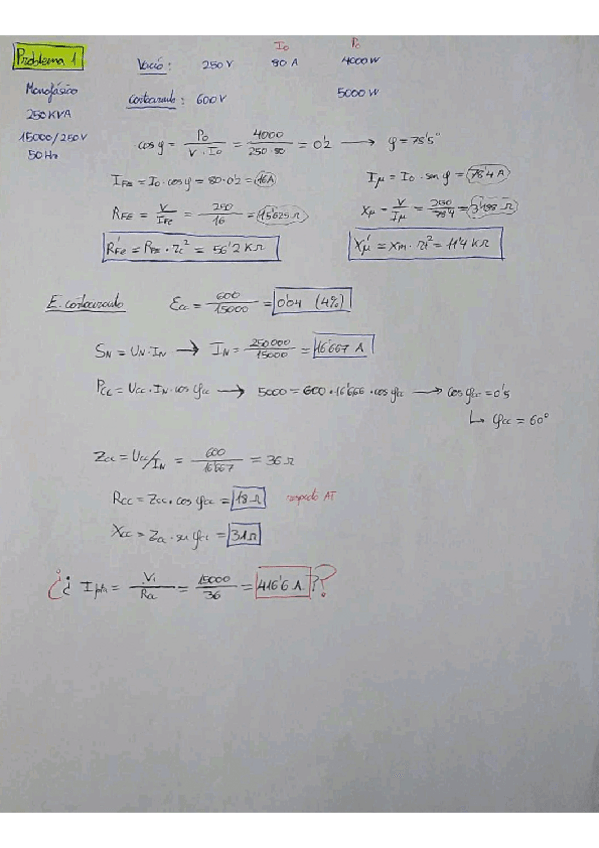 Problema 1
I₀ P₀
Vacío : 250 V 80 A 4000 W
Monofásico
Cortocircuito : 600 V 5000 W
250 KVA
15000/250 V
50 Hz
cos φ = P₀ / V · I₀ = 4000 / 250 · 80 = 0'2 → φ = 78'5°
I_Fe = I₀ · cos φ = 80 · 0'2 = 16 A I_μ = I₀ · sen φ = 78'4 A
R_Fe = V / I_Fe = 250 / 16 = 15'625 Ω X_μ = V / I_μ = 250 / 78'4 = 3'188 Ω
R'_Fe = R_Fe · r_t² = 56'2 KΩ X'_μ = X_m · r_t² = 11'4 KΩ
E. cortocircuito ε_cc = 600 / 15000 = 0'04 (4%)
S_N = U_N · I_N → I_N = 250000 / 15000 = 16'667 A
P_cc = U_cc · I_N · cos φ_cc → 5000 = 600 · 16'666 · cos φ_cc → cos φ_cc = 0'5
↳ φ_cc = 60°
Z_cc = U_cc / I_N = 600 / 16'667 = 36 Ω
R_cc = Z_cc · cos φ_cc = 18 Ω respecto AT
X_cc = Z_cc · sen φ_cc = 31 Ω
¿¿ = V₁ / R_cc = 15000 / 36 = 416'6 A ??